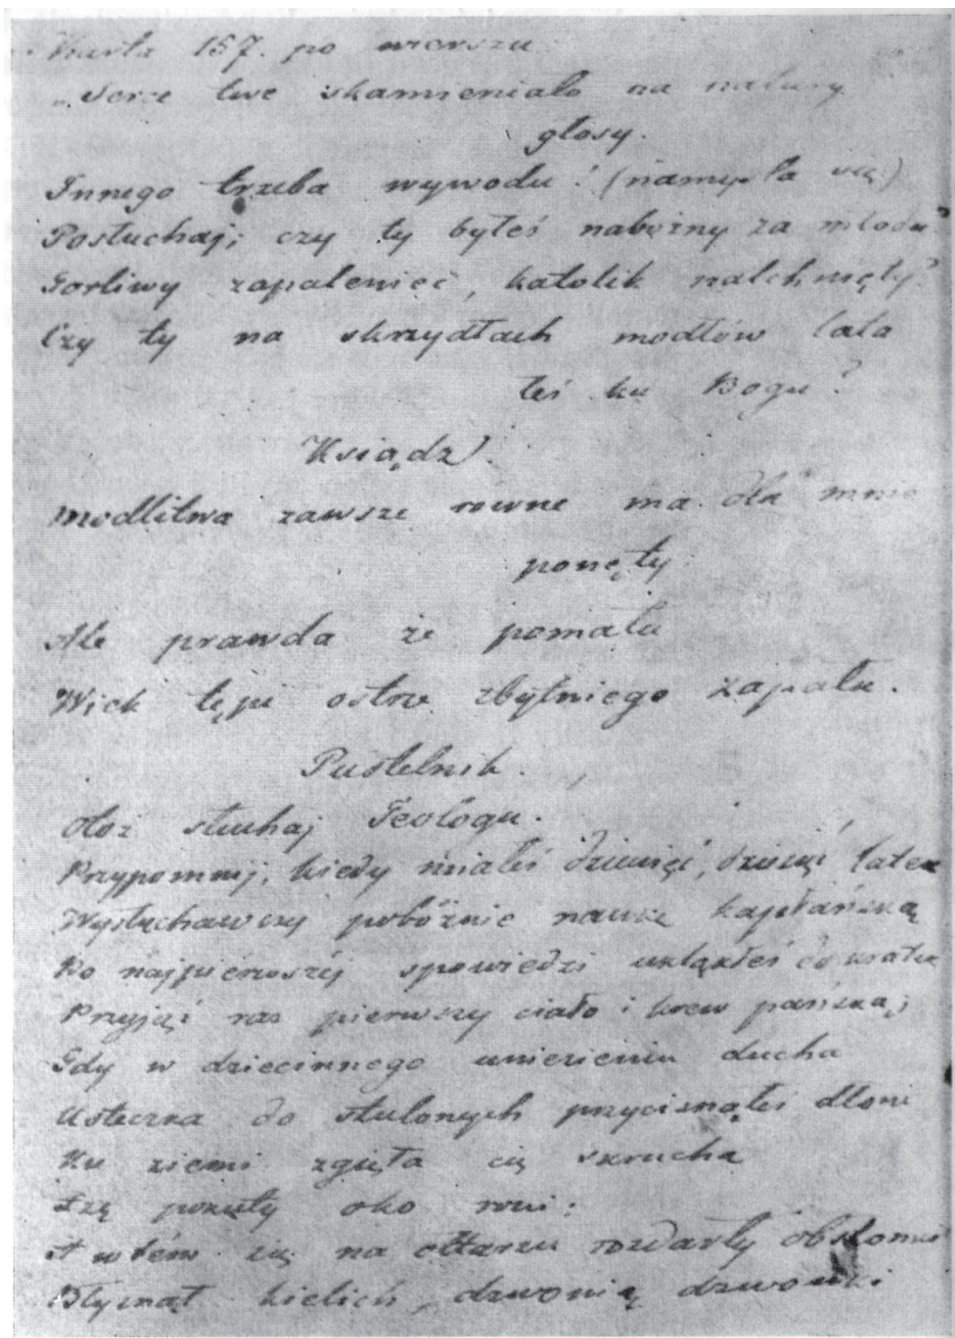 Karta 157. po wierszu
„Serce twe skamieniało na natury
głosy.
Innego trzeba wywodu! (namyśla się)
Posłuchaj; czy ty byłeś nabożny za młodu?
Gorliwy zapaleniec, katolik natchnięty?
Czy ty na skrzydłach modłów lata
łeś ku Bogu?
Ksiądz.
Modlitwa zawsze rowne ma dla mnie
ponęty
Ale prawda że pomału
Wiek tępi ostrze zbytniego zapału.
Pustelnik.
Otoż słuhaj Teologu.
Przypomnij, kiedy miałeś dziewięć, dziesięć latek
Wysłuchawszy pobóżnie naukę kapłańską
Po najpierwszéj spowiedzi ukląkłeś do kratek
Przyjąć raz pierwszy ciało i krew pańską;
Gdy w dziecinnego uniesieniu ducha
Usteczka do stulonych przycisnąłeś dłoni
Ku ziemi zgięła cię skrucha
Łzę pokuty oko roni;
A wtém się na ołtarzu rozdarły obsłonki
Błysnął kielich, dzwonią dzwonki